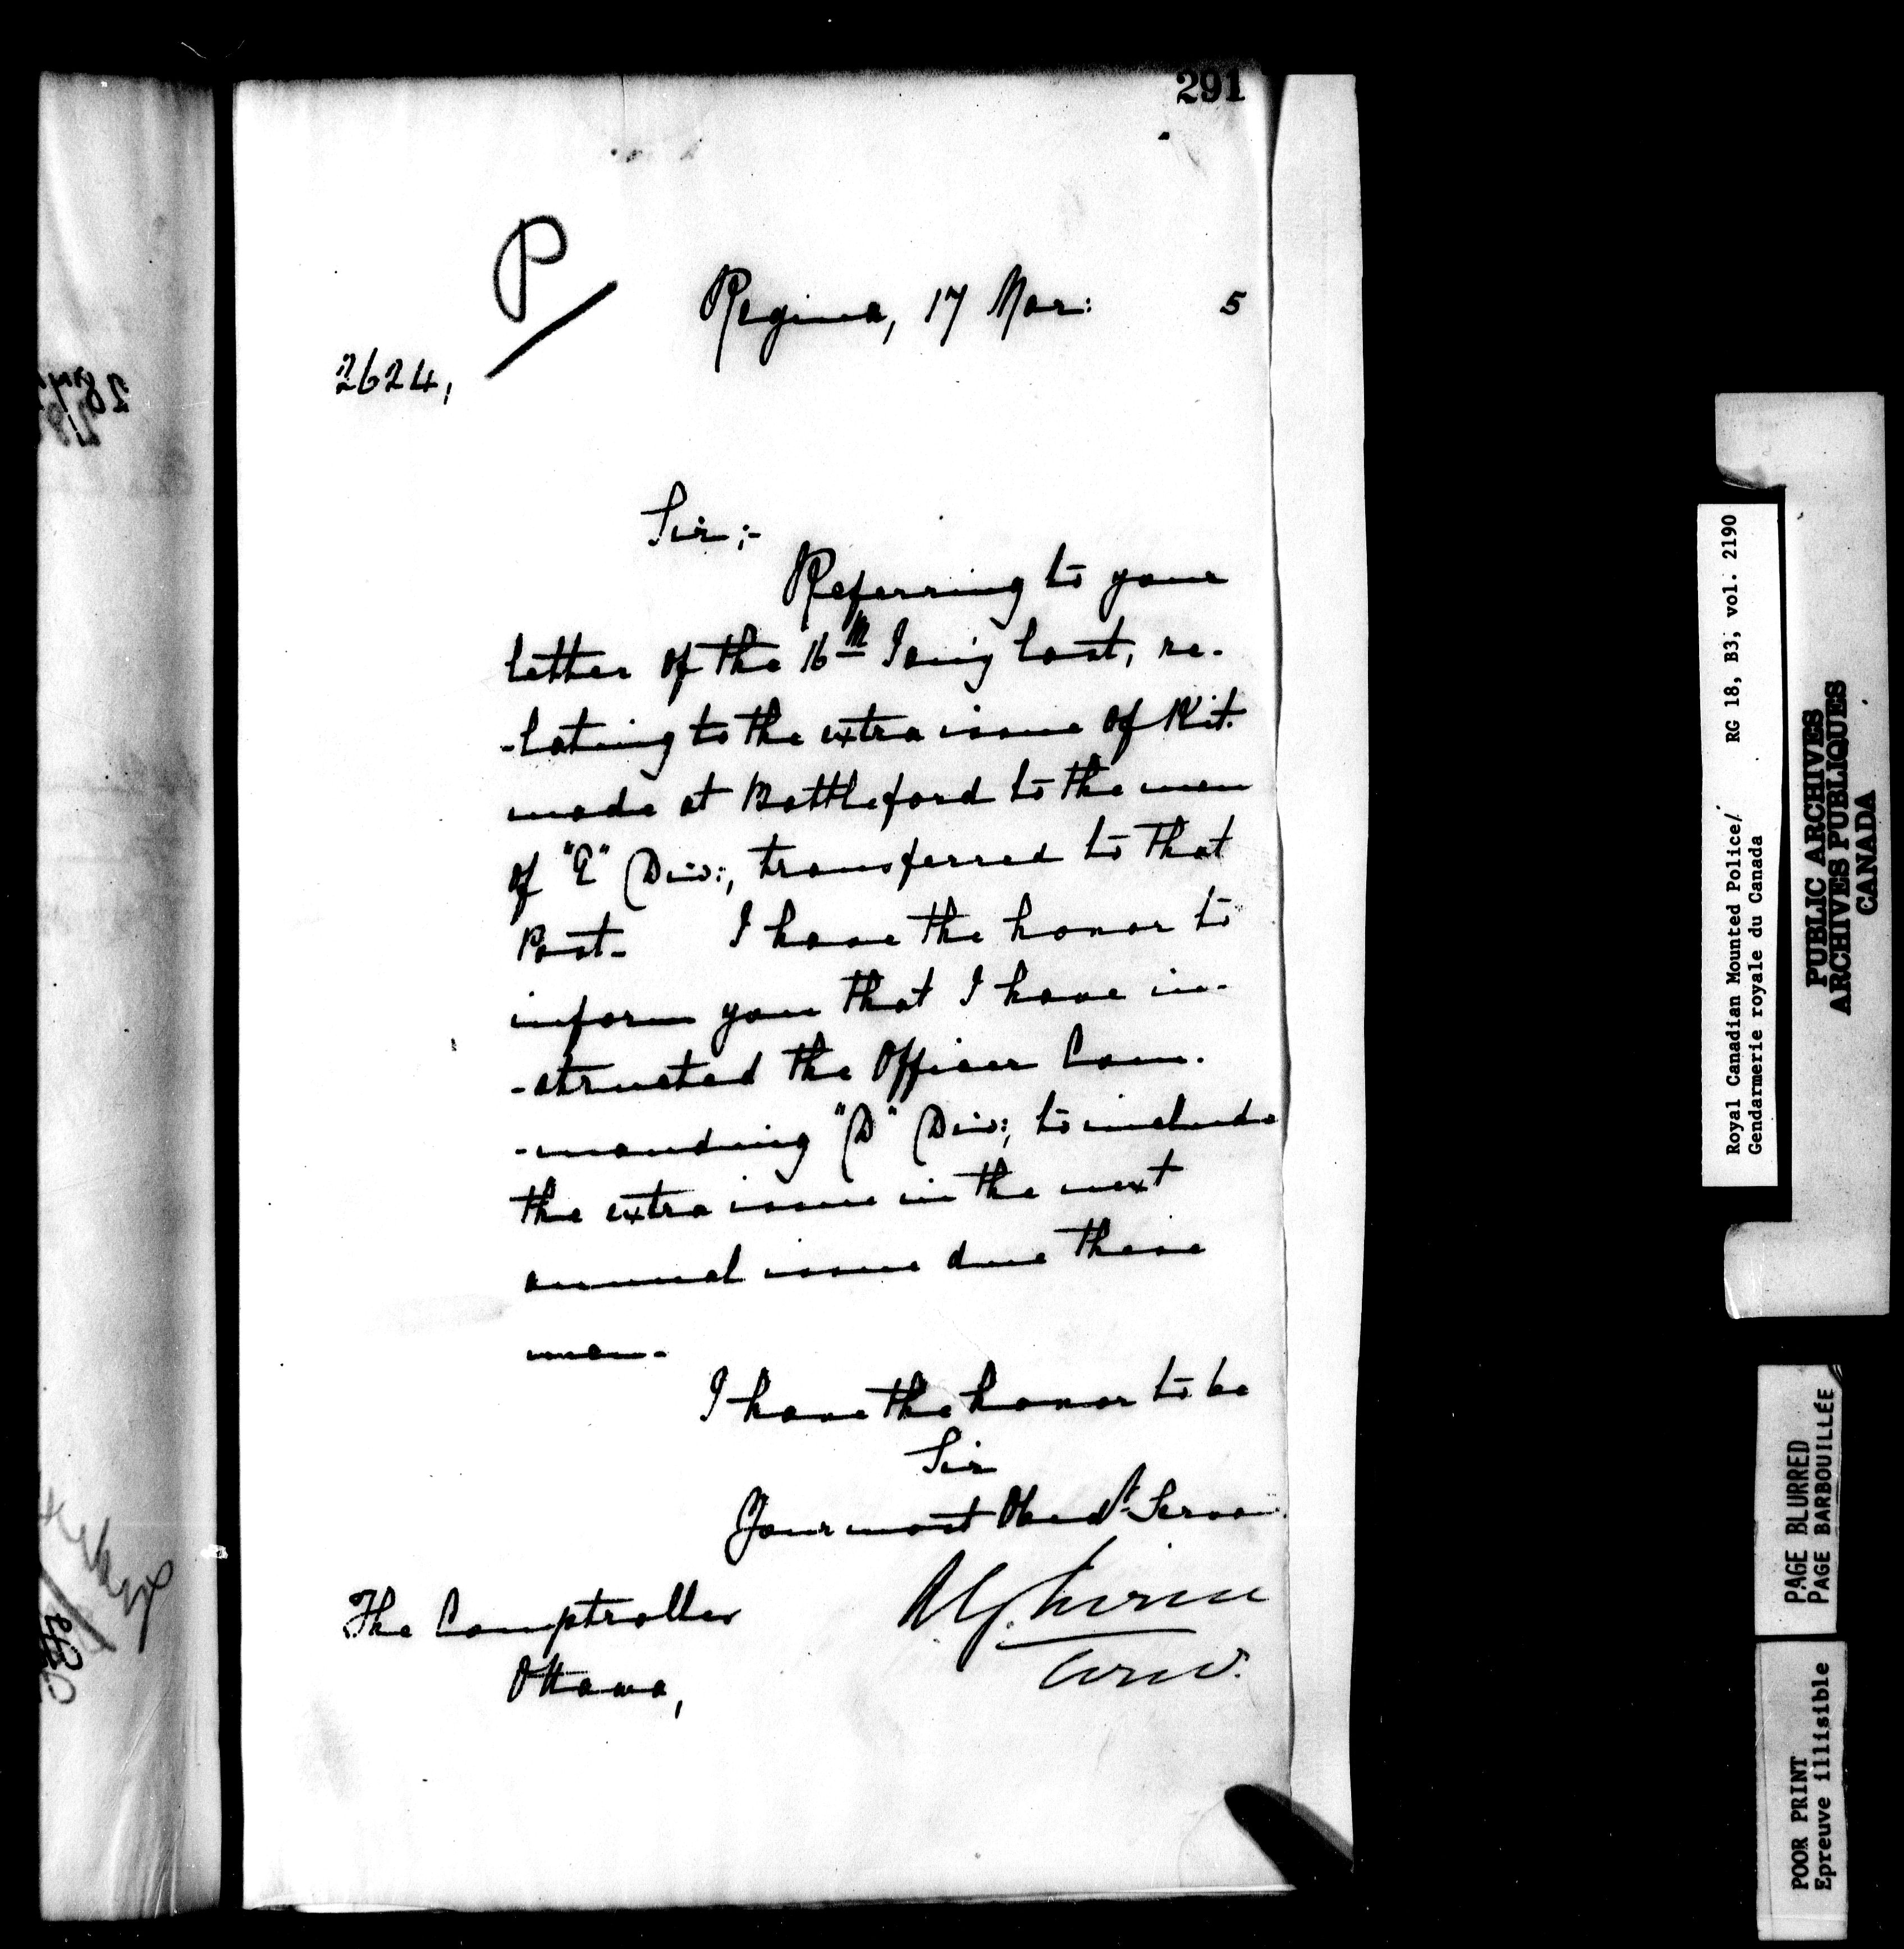 291
P
Regina, 17 Mar: 5
2624,
Sir;-
Referring to your
letter of the 16th Jan'y last, re-
-lating to the extra issue of Kit.
made at Battleford to the men
of "E" Div:, transferred to that
Post- I have the honor to
inform you that I have in-
-structed the Officer Com-
-manding "D" Div:, to include
the extra issue in the next
annual issue due these
men-
I have the honor to be
Sir
Your most Obed't Servan
AG Irvine
The Comptroller
Ottawa,
Royal Canadian Mounted Police/ RG 18, B3, vol. 2190
Gendarmerie royale du Canada
PUBLIC ARCHIVES
ARCHIVES PUBLIQUES
CANADA
PAGE BLURRED
PAGE BARBOUILLÉE
POOR PRINT
Epreuve illisible